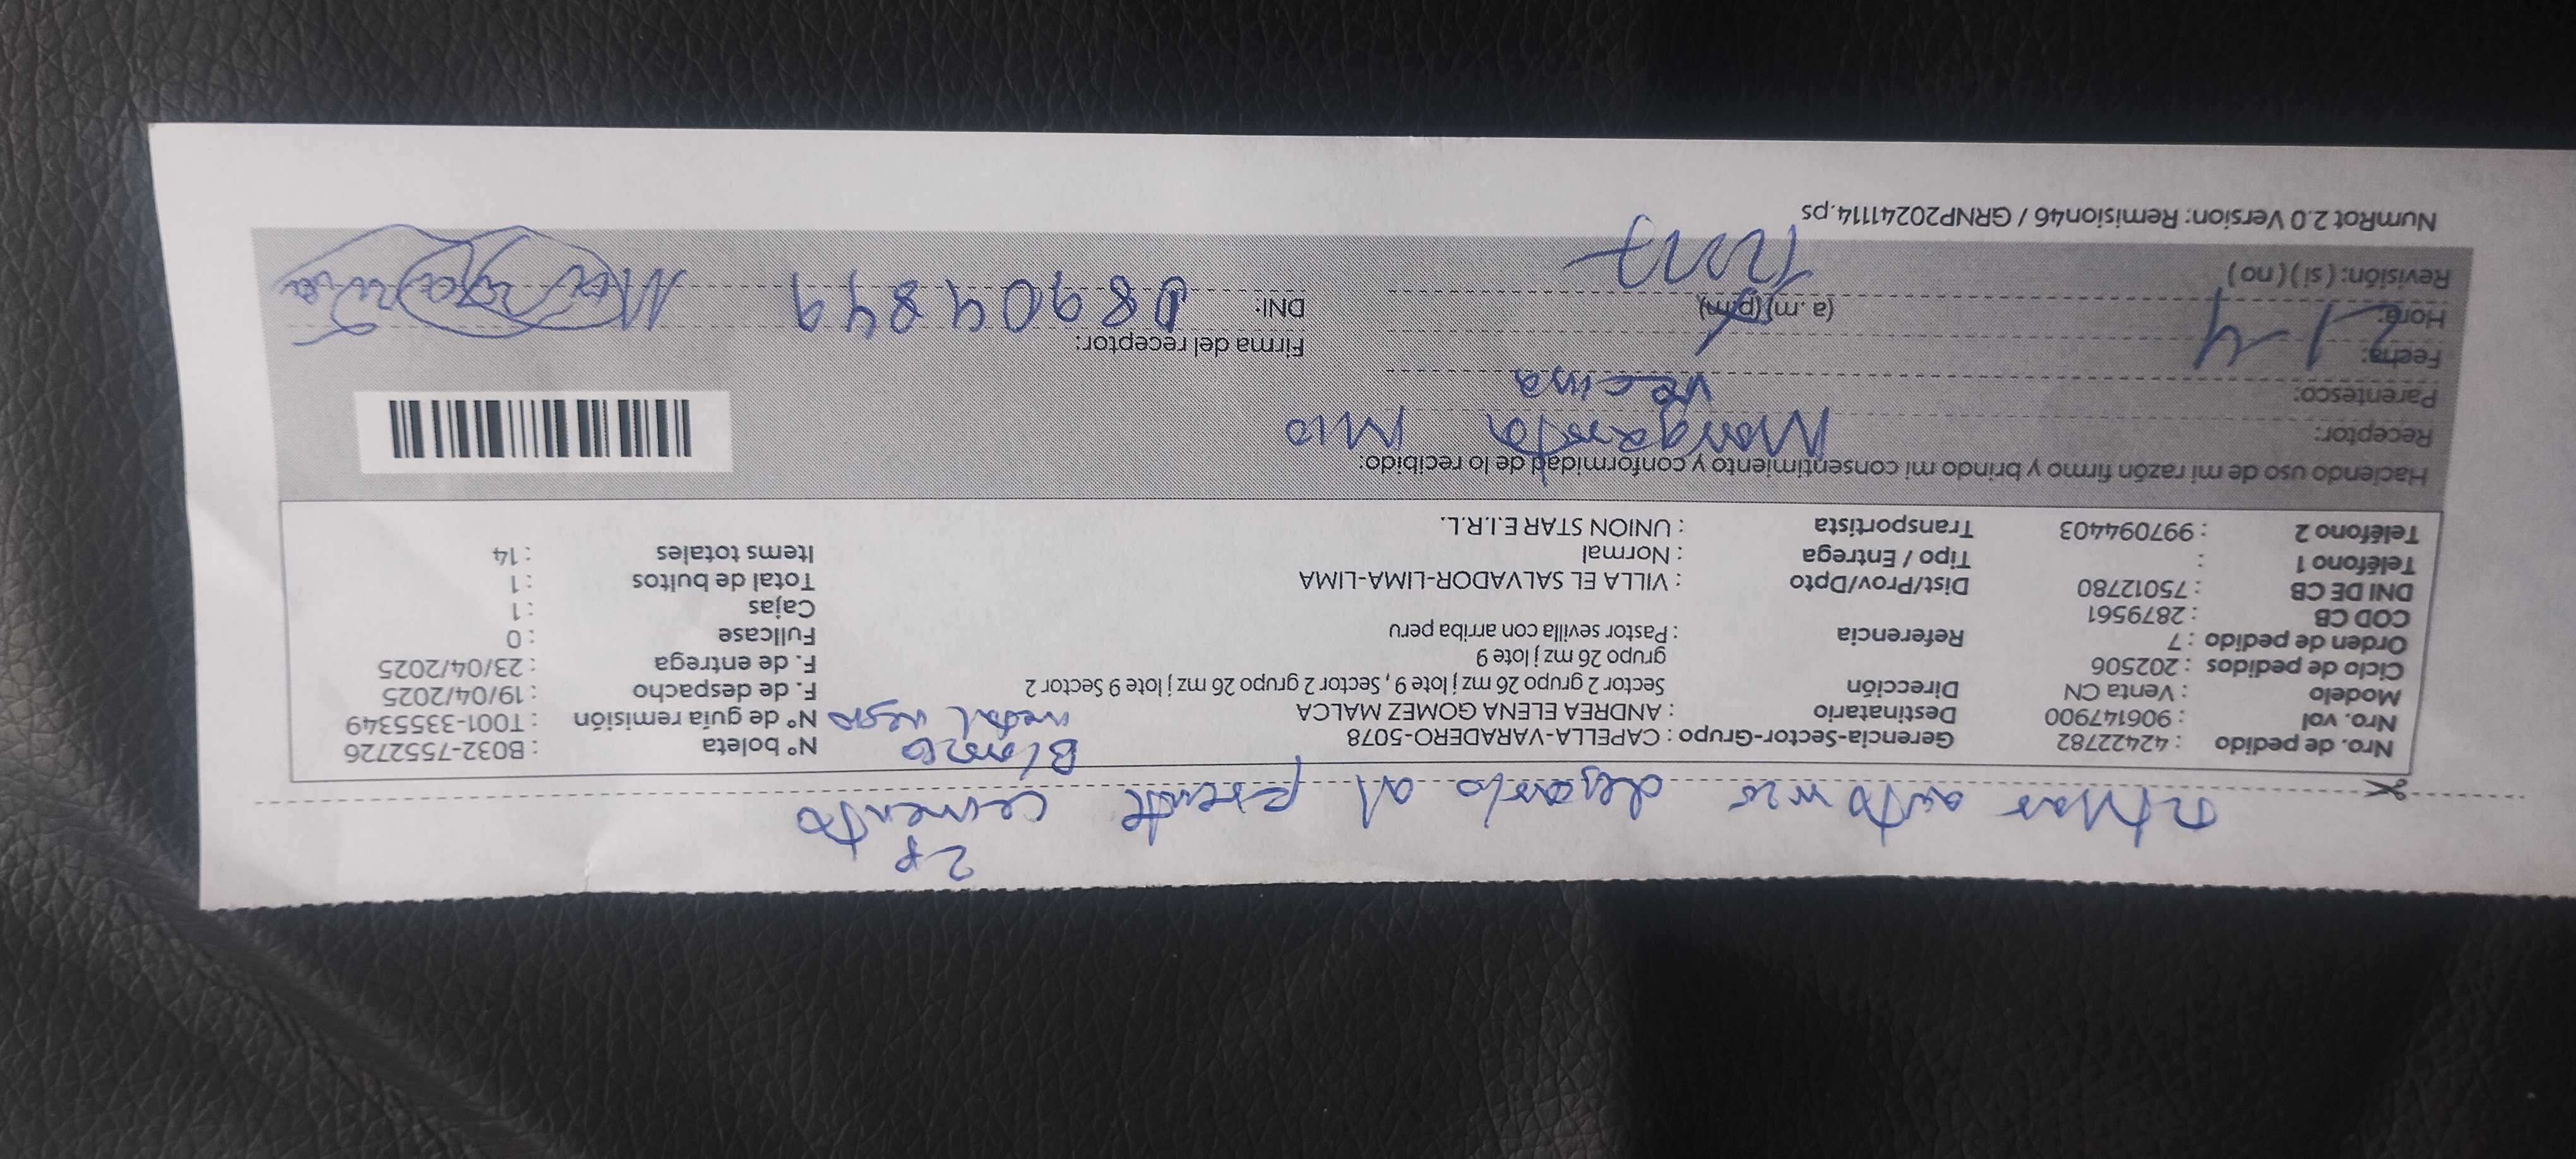 2P
titular autorizo dejarlo al frente cemento
Blanco
metal negro
Nro. de pedido : 42422782
Nro. vol : 906147900
Modelo : Venta CN
Ciclo de pedidos : 202506
Orden de pedido : 7
COD CB : 2879561
DNI DE CB : 75012780
Teléfono 1 :
Teléfono 2 : 997094403
Gerencia-Sector-Grupo : CAPELLA-VARADERO-5078
Destinatario : ANDREA ELENA GOMEZ MALCA
Dirección Sector 2 grupo 26 mz j lote 9 , Sector 2 grupo 26 mz j lote 9 Sector 2
grupo 26 mz j lote 9
Referencia : Pastor sevilla con arriba peru
Dist/Prov/Dpto : VILLA EL SALVADOR-LIMA-LIMA
Tipo / Entrega : Normal
Transportista : UNION STAR E.I.R.L.
Nº boleta : B032-7552726
Nº de guía remisión : T001-3355349
F. de despacho : 19/04/2025
F. de entrega : 23/04/2025
Fullcase : 0
Cajas : 1
Total de bultos : 1
Items totales : 14
Haciendo uso de mi razón firmo y brindo mi consentimiento y conformidad de lo recibido:
Receptor: Margarita Mio
Parentesco: vecina
Fecha: 21-4
Hora: (a.m) (p.m)
Revisión: ( si ) ( no )
Firma del receptor:
DNI: 08904849
NumRot 2.0 Version: Remision46 / GRNP20241114.ps